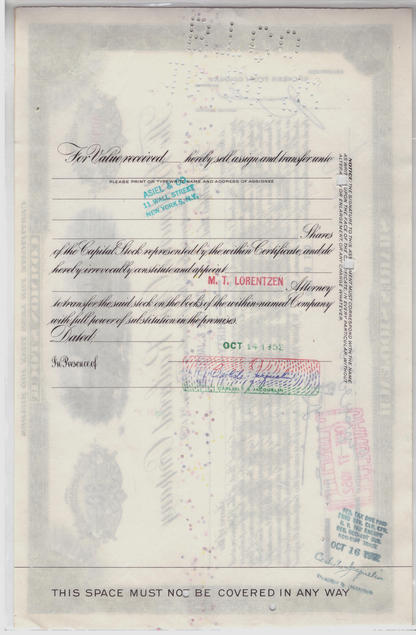 For Value received, hereby sell, assign and transfer unto
PLEASE PRINT OR TYPEWRITE NAME AND ADDRESS OF ASSIGNEE
ASIEL & CO.
11 WALL STREET
NEW YORK 5, N.Y.
Shares
of the Capital Stock represented by the within Certificate, and do
hereby irrevocably constitute and appoint
M. T. LORENTZEN
Attorney
to transfer the said stock on the books of the within-named Company
with full power of substitution in the premises.
Dated
OCT 14 1952
In Presence of
CARLISLE & JACQUELIN
NOTICE: THE SIGNATURE TO THIS ASSIGNMENT MUST CORRESPOND WITH THE NAME
AS WRITTEN UPON THE FACE OF THE CERTIFICATE IN EVERY PARTICULAR, WITHOUT
ALTERATION OR ENLARGEMENT OR ANY CHANGE WHATEVER.
OCT 16 1952
Carlisle & Jacquelin
THIS SPACE MUST NOT BE COVERED IN ANY WAY